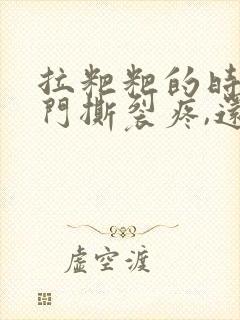 拉粑粑的時
門撕裂疼,還
虛空渡